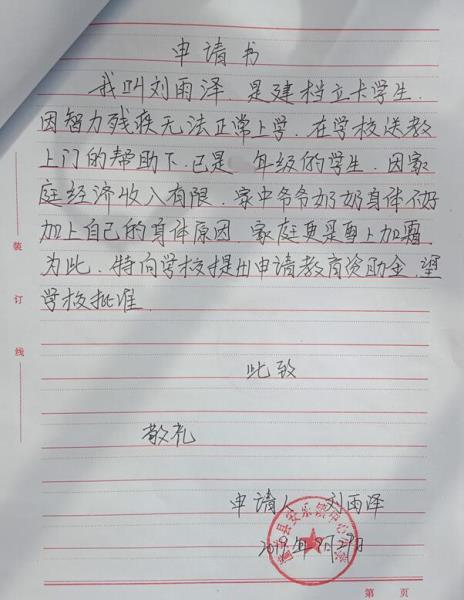 申请书
我叫刘雨泽，是建档立卡学生，
因智力残疾无法正常上学，在学校送教
上门的帮助下，已是 年级的学生，因家
庭经济收入有限，家中爷爷奶奶身体不好
加上自己的身体原因，家庭更是雪上加霜，
为此，特向学校提出申请教育资助金，望
学校批准
装
订
线
此致
敬礼
申请人 刘雨泽
2019年 月27日
第 页